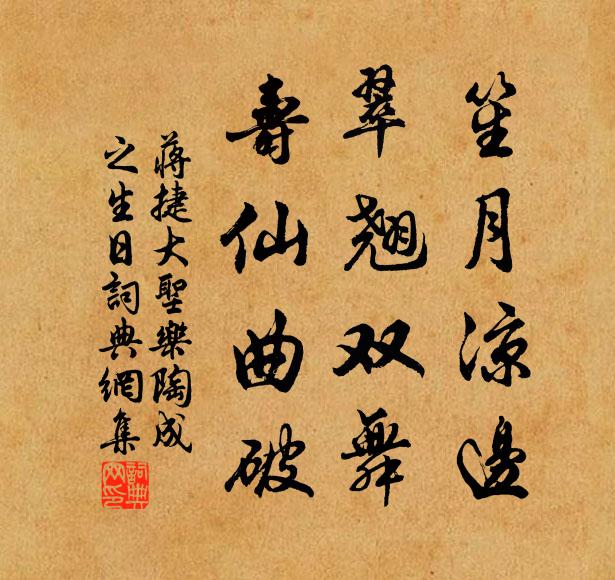 笙月凉邊
翠翹双舞
壽仙曲破
蔣捷大聖樂陶成
之生日詞典網集
詞典
网印